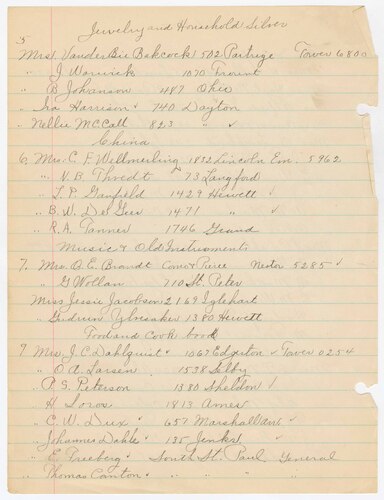 Jewelry and Household Silver
5
Mrs VanderBie Babcock 502 Partrige Tower 6800
" J. Warwick 1070 Front
" B Johanson 487 Ohio
" Ira Harrison 740 Dayton
" Nellie McCall 823 " "
China
6. Mrs. C. F. Wellmerling 1852 Lincoln Em. 5962
" N. B Thredt 73 Langford
" L. P. Ganfield 1429 Hewett
" B. W. De Geer 1471 " "
" R. A. Tanner 1746 Grand
Music & Old Instruments
7. Mrs. O. E. Brandt Como & Pierce Nestor 5285
" G Wollan 710 St. Peter
Miss Jessie Jacobson 2169 Iglehart
" Gudrun Ylvisaker 1380 Hewett
Food and Cook book
9 Mrs J. C. Dahlquist 1067 Edgerton Tower 0254
" O. A. Larsen 1538 Selby
" P. G. Peterson 1380 Sheldon
" H Soros 1813 Ames
" C. W. Dux 657 Marshall Av
" Johannes Dahle 135 Jenks
" E Freeberg South St. Paul General
" Thomas Canton